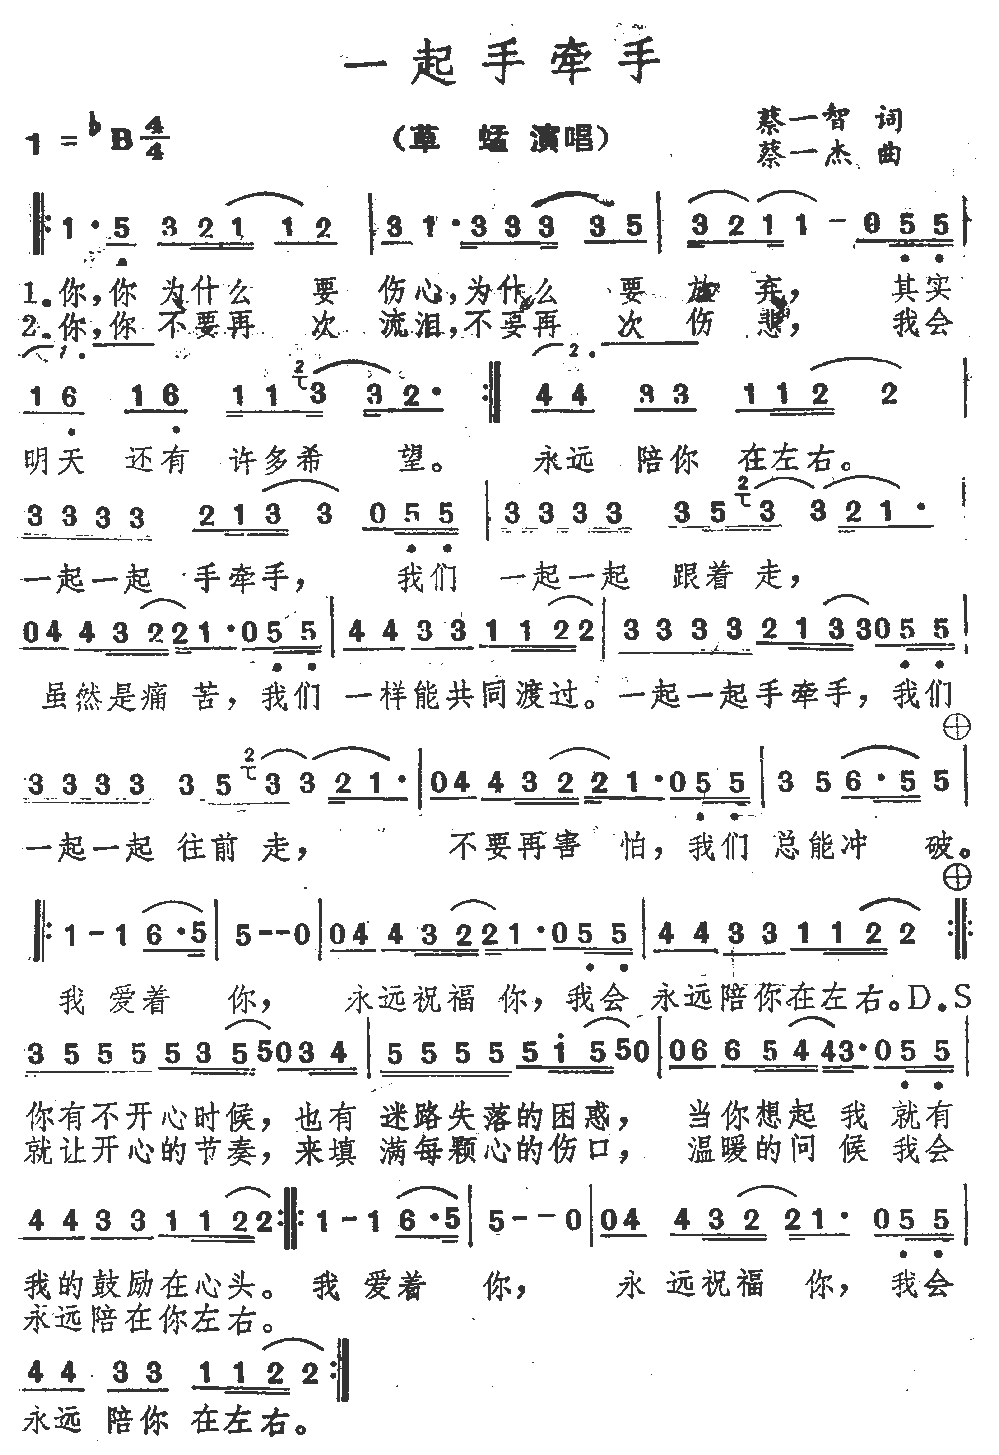 一起手牵手
1=♭B 4/4 (草蜢 演唱) 蔡一智 词
蔡一杰 曲
1·5 321 12 | 31·333 35 | 3211-055 |
1.你,你 为什么 要 伤心,为什么 要 放弃, 其实
2.你,你 不要再 次 流泪,不要再 次 伤悲, 我会
1. 2.
16 16 113 32· :‖ 44 33 112 2 |
明天 还有 许多希 望。 永远 陪你 在左右。
3333 213 3 055 | 3333 353 321· |
一起一起 手牵手, 我们 一起一起 跟着走,
0443221·055 | 4433 11 22 2 | 3333 2133055 |
虽然是痛 苦,我们 一样能共同渡过。一起一起手牵手,我们
3333 353 321· | 0443221·055 | 356·55 |
一起一起 往前 走, 不要再害 怕,我们 总能冲 破。
‖: 1-1 6·5 | 5--0 | 0443221·055 | 4433 1122 2 :‖
我 爱着 你, 永远祝福 你,我会 永远陪你在左右。D.S
3555535 5034 | 555551 550 | 066544 43·055 |
你有不开心时候,也有 迷路失落的困惑, 当你想起 我 就有
就让开心的节奏,来填 满每颗心的伤口, 温暖的问 候 我会
4433 1122 2 :‖: 1-1 6·5 | 5--0 | 04 432 21· 055 |
我的鼓励在心头。 我 爱着 你, 永 远祝福 你, 我会
永远陪在你左右。
44 33 1122 :‖
永远 陪你 在左右。